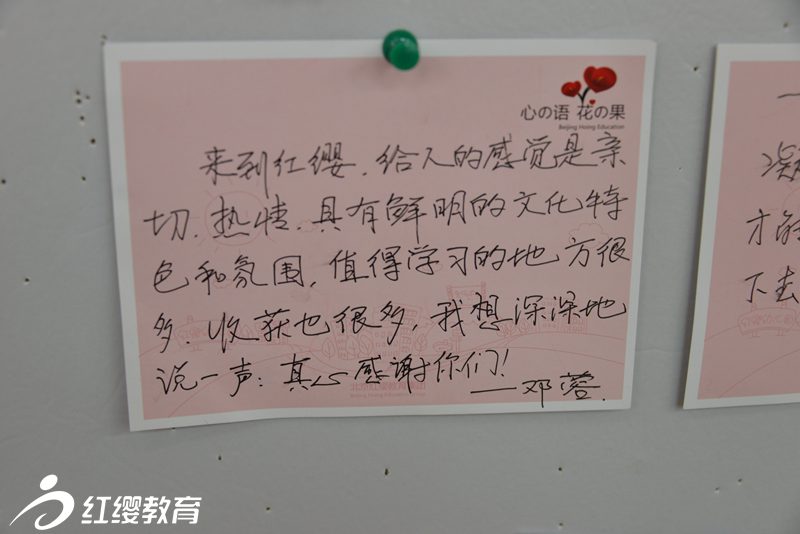 心の语 花の果
Beijing Hoing Education
来到红缨,给人的感觉是亲
切.热情,具有鲜明的文化特
色和氛围,值得学习的地方很
多.收获也很多,我想深深地
说一声:真心感谢你们!
——邓蓉.
一
凝
才能
下去
红缨教育